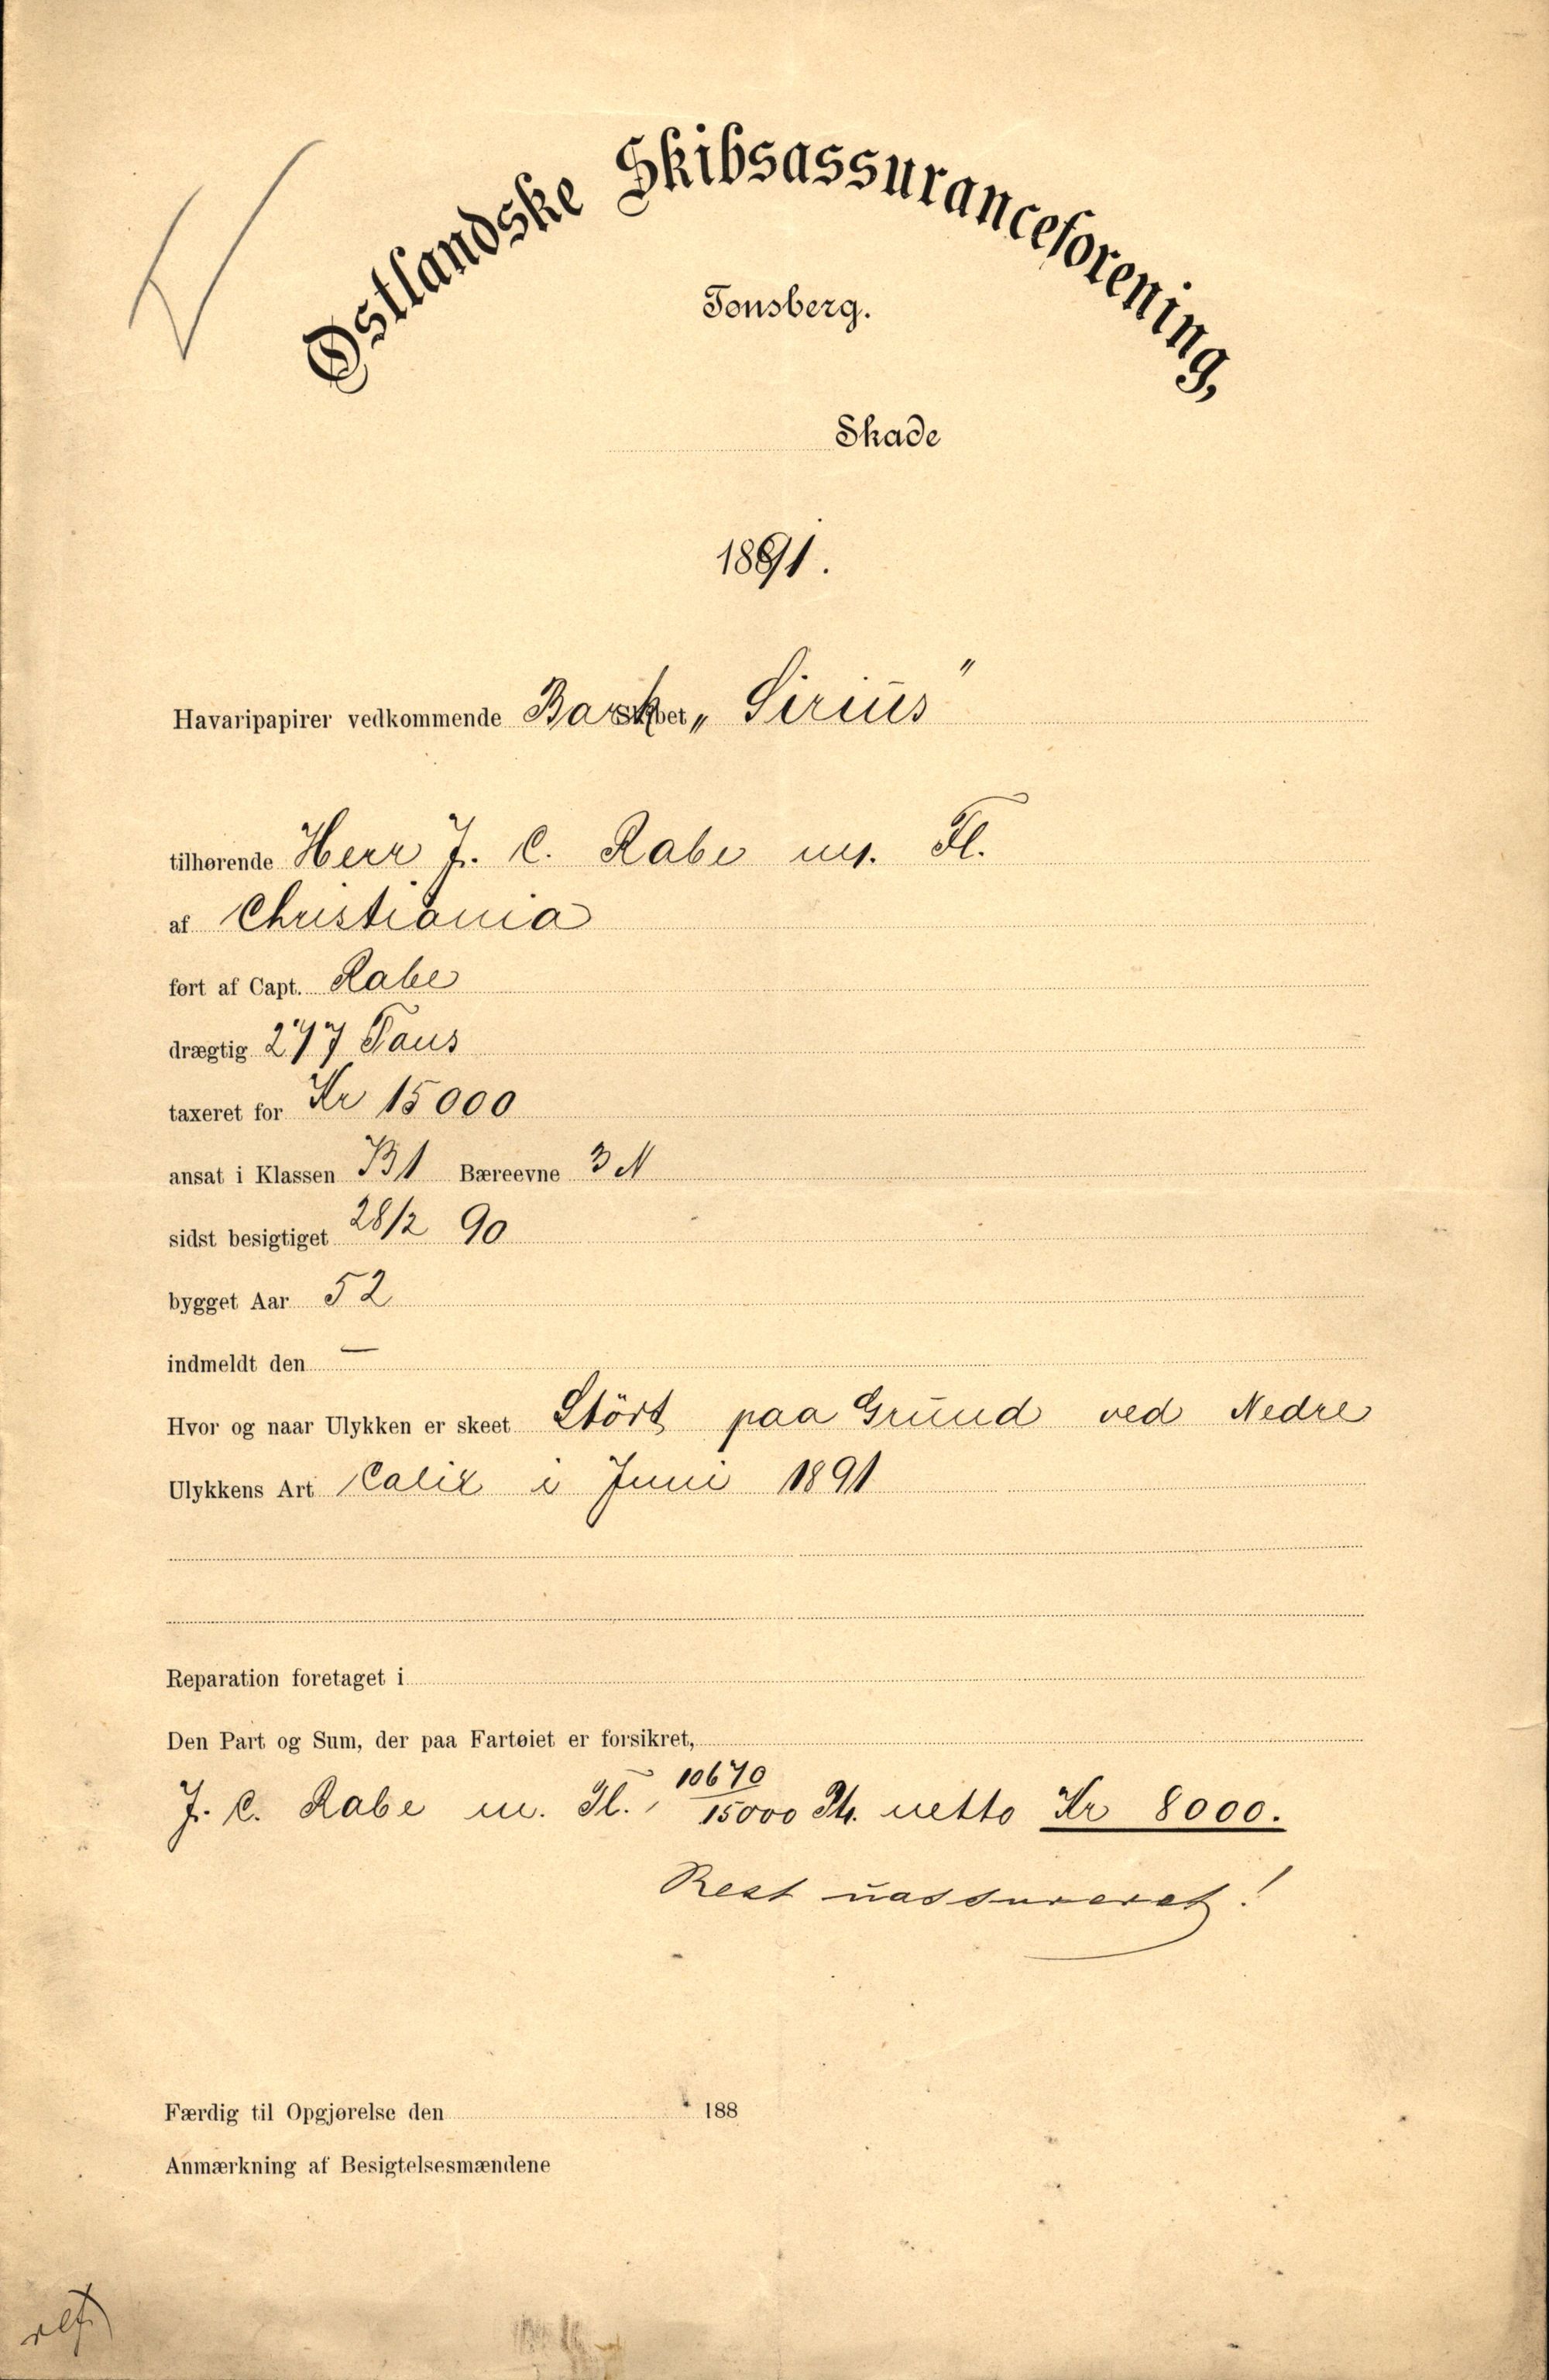 Østlandske Skibsassuranceforening,
Tønsberg.
Skade
1891.
Havaripapirer vedkommende Bark Skibet „Sirius"
tilhørende Herr J. C. Rabe m. Fl.
af Christiania
ført af Capt. Rabe
drægtig 277 Tons
taxeret for Kr 15000
ansat i Klassen B1 Bæreevne 3 N
sidst besigtiget 28/2 90
bygget Aar 52
indmeldt den —
Hvor og naar Ulykken er skeet Stört paa Grund ved Nedre
Ulykkens Art Calix i Juni 1891
Reparation foretaget i
Den Part og Sum, der paa Fartøiet er forsikret,
J. C. Rabe m. Fl. 10670/15000 Pt. netto Kr 8000.
Rest uassureret!
Færdig til Opgjørelse den 188
Anmærkning af Besigtelsesmændene